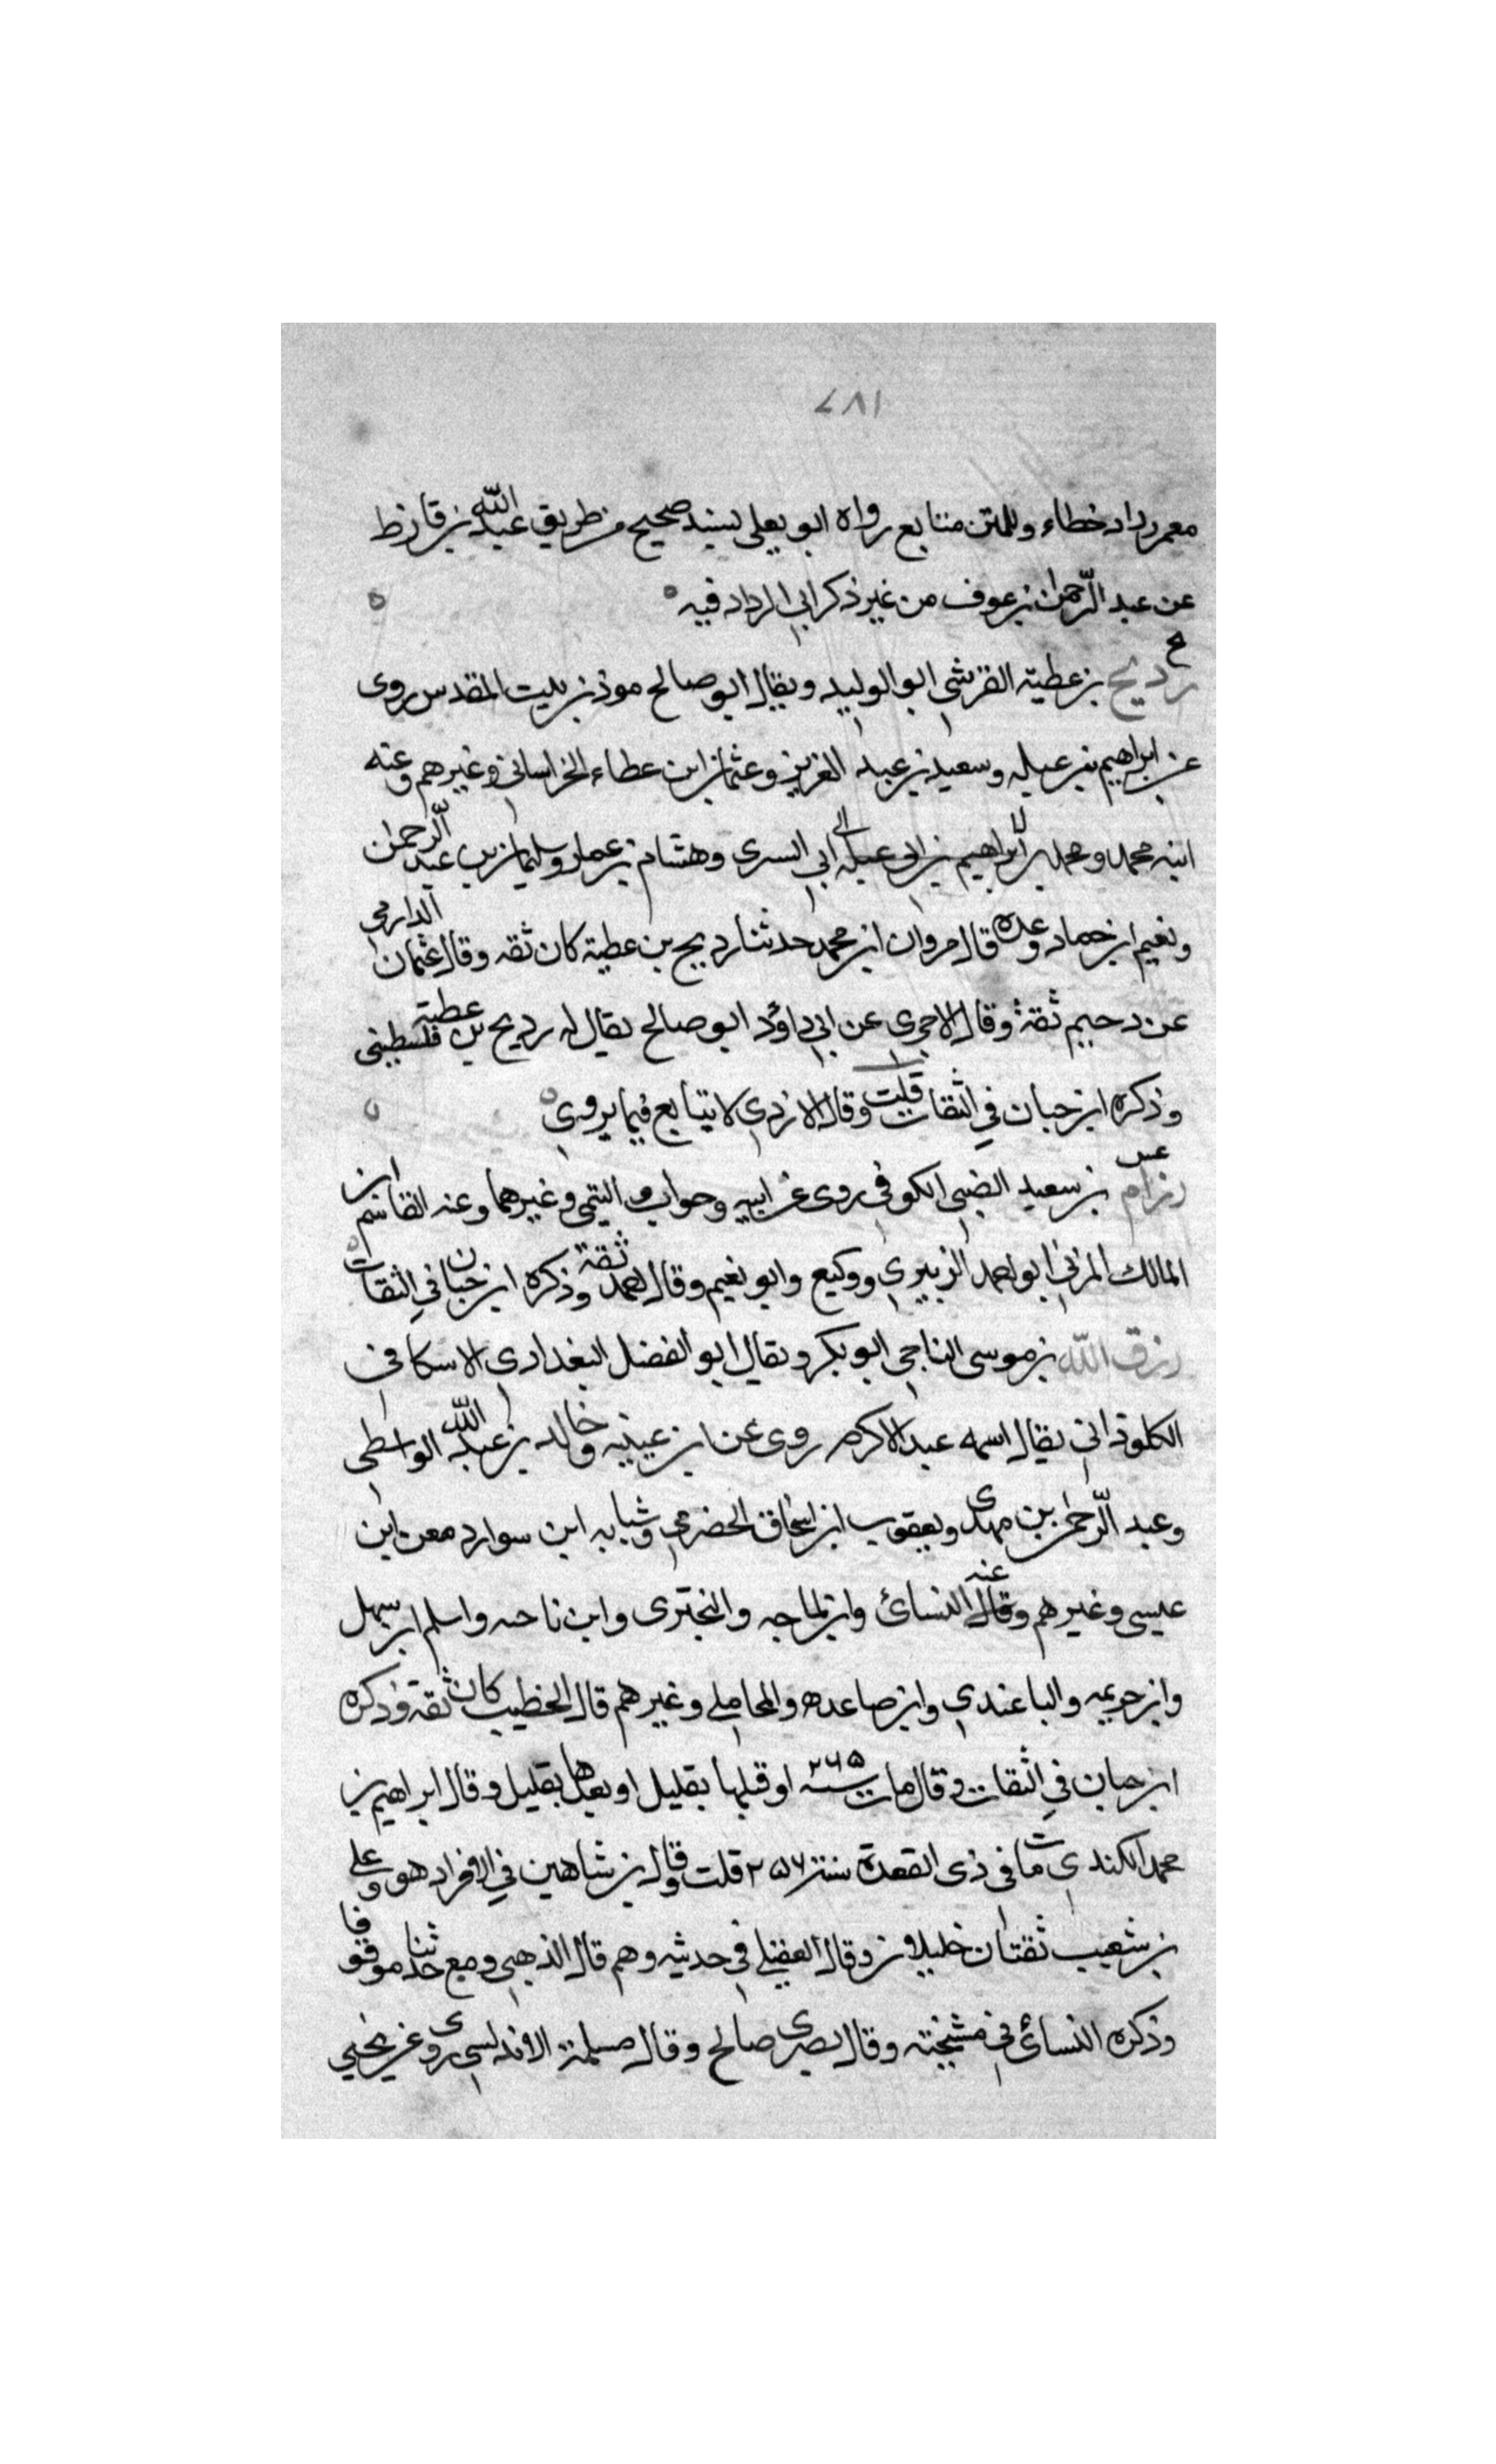 ٧٨١
معمر رداد خطاء وللمتن متابع رواه ابو يعلى بسند صحيح من طريق عبد الله بن قارظ
عن عبد الرحمن بن عوف من غير ذكر ابى الرداد فيه
رديح بن عطية القرشى ابو الوليد ويقال ابو صالح موذن بيت المقدس روى
عن ابراهيم بن عبله وسعيد بن عبد العزيز وعثمان ابن عطاء الخراسانى وغيرهم وعنه
ابنه محمد ومحمد بن ابراهيم بن ابى عبله ابى السرى وهشام بن عمار وسليمان بن عبد الرحمن
ونعيم ابن حماد وعده قال مروان ابن محمد حدثنا رديح بن عطية كان ثقه وقال عثمان الدارمى
عن دحيم ثقة وقال الاجرى عن ابى داؤد ابو صالح يقال له رديح بن عطية فلسطينى
وذكره ابن حبان فى الثقات قلت وقال الازدى لا يتابع فيما يروى
رزام بن سعيد الضبى الكوفى روى عن ابيه وجواب التيمى وغيرهما وعنه القاسم ابن
المالك المزنى ابو احمد الزبيرى ووكيع وابو نعيم وقال احمد ثقة وذكره ابن حبان فى الثقات
رزق الله بن موسى الناجى ابو بكر ويقال ابو الفضل البغدادى الاسكافى
الكلوذانى يقال اسمه عبد الاكرم روى عن ابن عيينه وخالد بن عبد الله الواسطى
وعبد الرحمن بن مهدى ويعقوب ابن اسحاق الحضرمى وشبابه ابن سوار د معن ابن
عيسى وغيرهم وقال عنه النسائ وابن الماجه والبخترى وابن ناحيه واسلم ابن سهل
وابن خزيمه والباغندى وابن صاعده والمحاملے وغيرهم قال الخطيب كان ثقة وذكره
ابن حبان فى الثقات وقال مات سنة ٢٦٥ او قبلها بقليل او بعدها بقليل وقال ابراهيم بن
محمد الكندى مات فى ذى القعدة سنة ٢٥٦ قلت وقال بن شاهين فى الافراد هو وعلى
بن شعيب ثقتان جليلان وقال العقيلے فى حديثه وهم قال الذهبى ومع حدثنا موقوفا
وذكره النسائى فى مشيخته وقال بصرى صالح وقال مسلمة الاندلسى روى عن يحيى